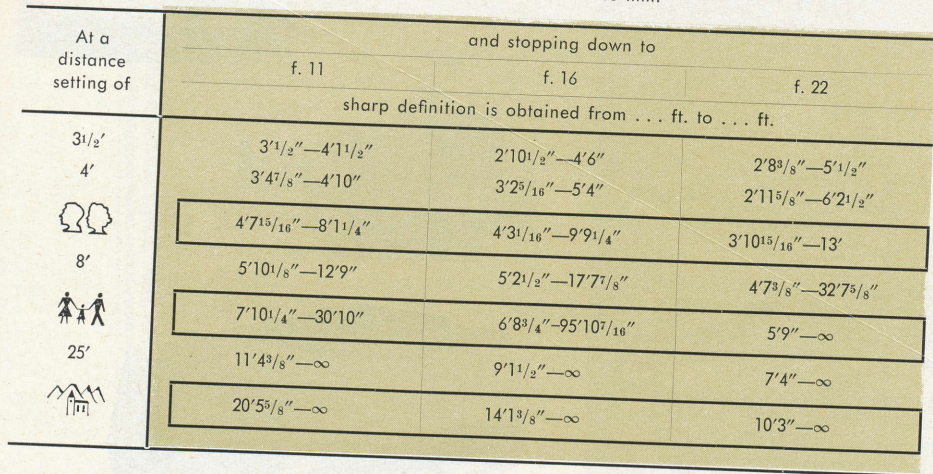 At a distance setting of
and stopping down to
f. 11 f. 16 f. 22
sharp definition is obtained from . . . ft. to . . . ft.
3½′ 3′½″—4′1½″ 2′10½″—4′6″ 2′8³/₈″—5′½″
4′ 3′4⁷/₈″—4′10″ 3′2⁵/₁₆″—5′4″ 2′11⁵/₈″—6′2½″
4′7¹⁵/₁₆″—8′1¼″ 4′3¹/₁₆″—9′9¼″ 3′10¹⁵/₁₆″—13′
8′ 5′10¹/₈″—12′9″ 5′2½″—17′7⁷/₈″ 4′7³/₈″—32′7⁵/₈″
7′10¼″—30′10″ 6′8¾″—95′10⁷/₁₆″ 5′9″—∞
25′ 11′4³/₈″—∞ 9′1½″—∞ 7′4″—∞
20′5⁵/₈″—∞ 14′1³/₈″—∞ 10′3″—∞